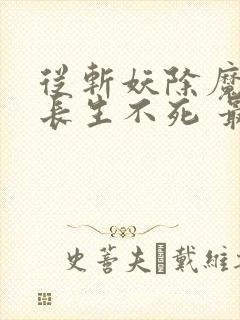 從斬妖除魔
長生不死 最
史蒂夫 戴維